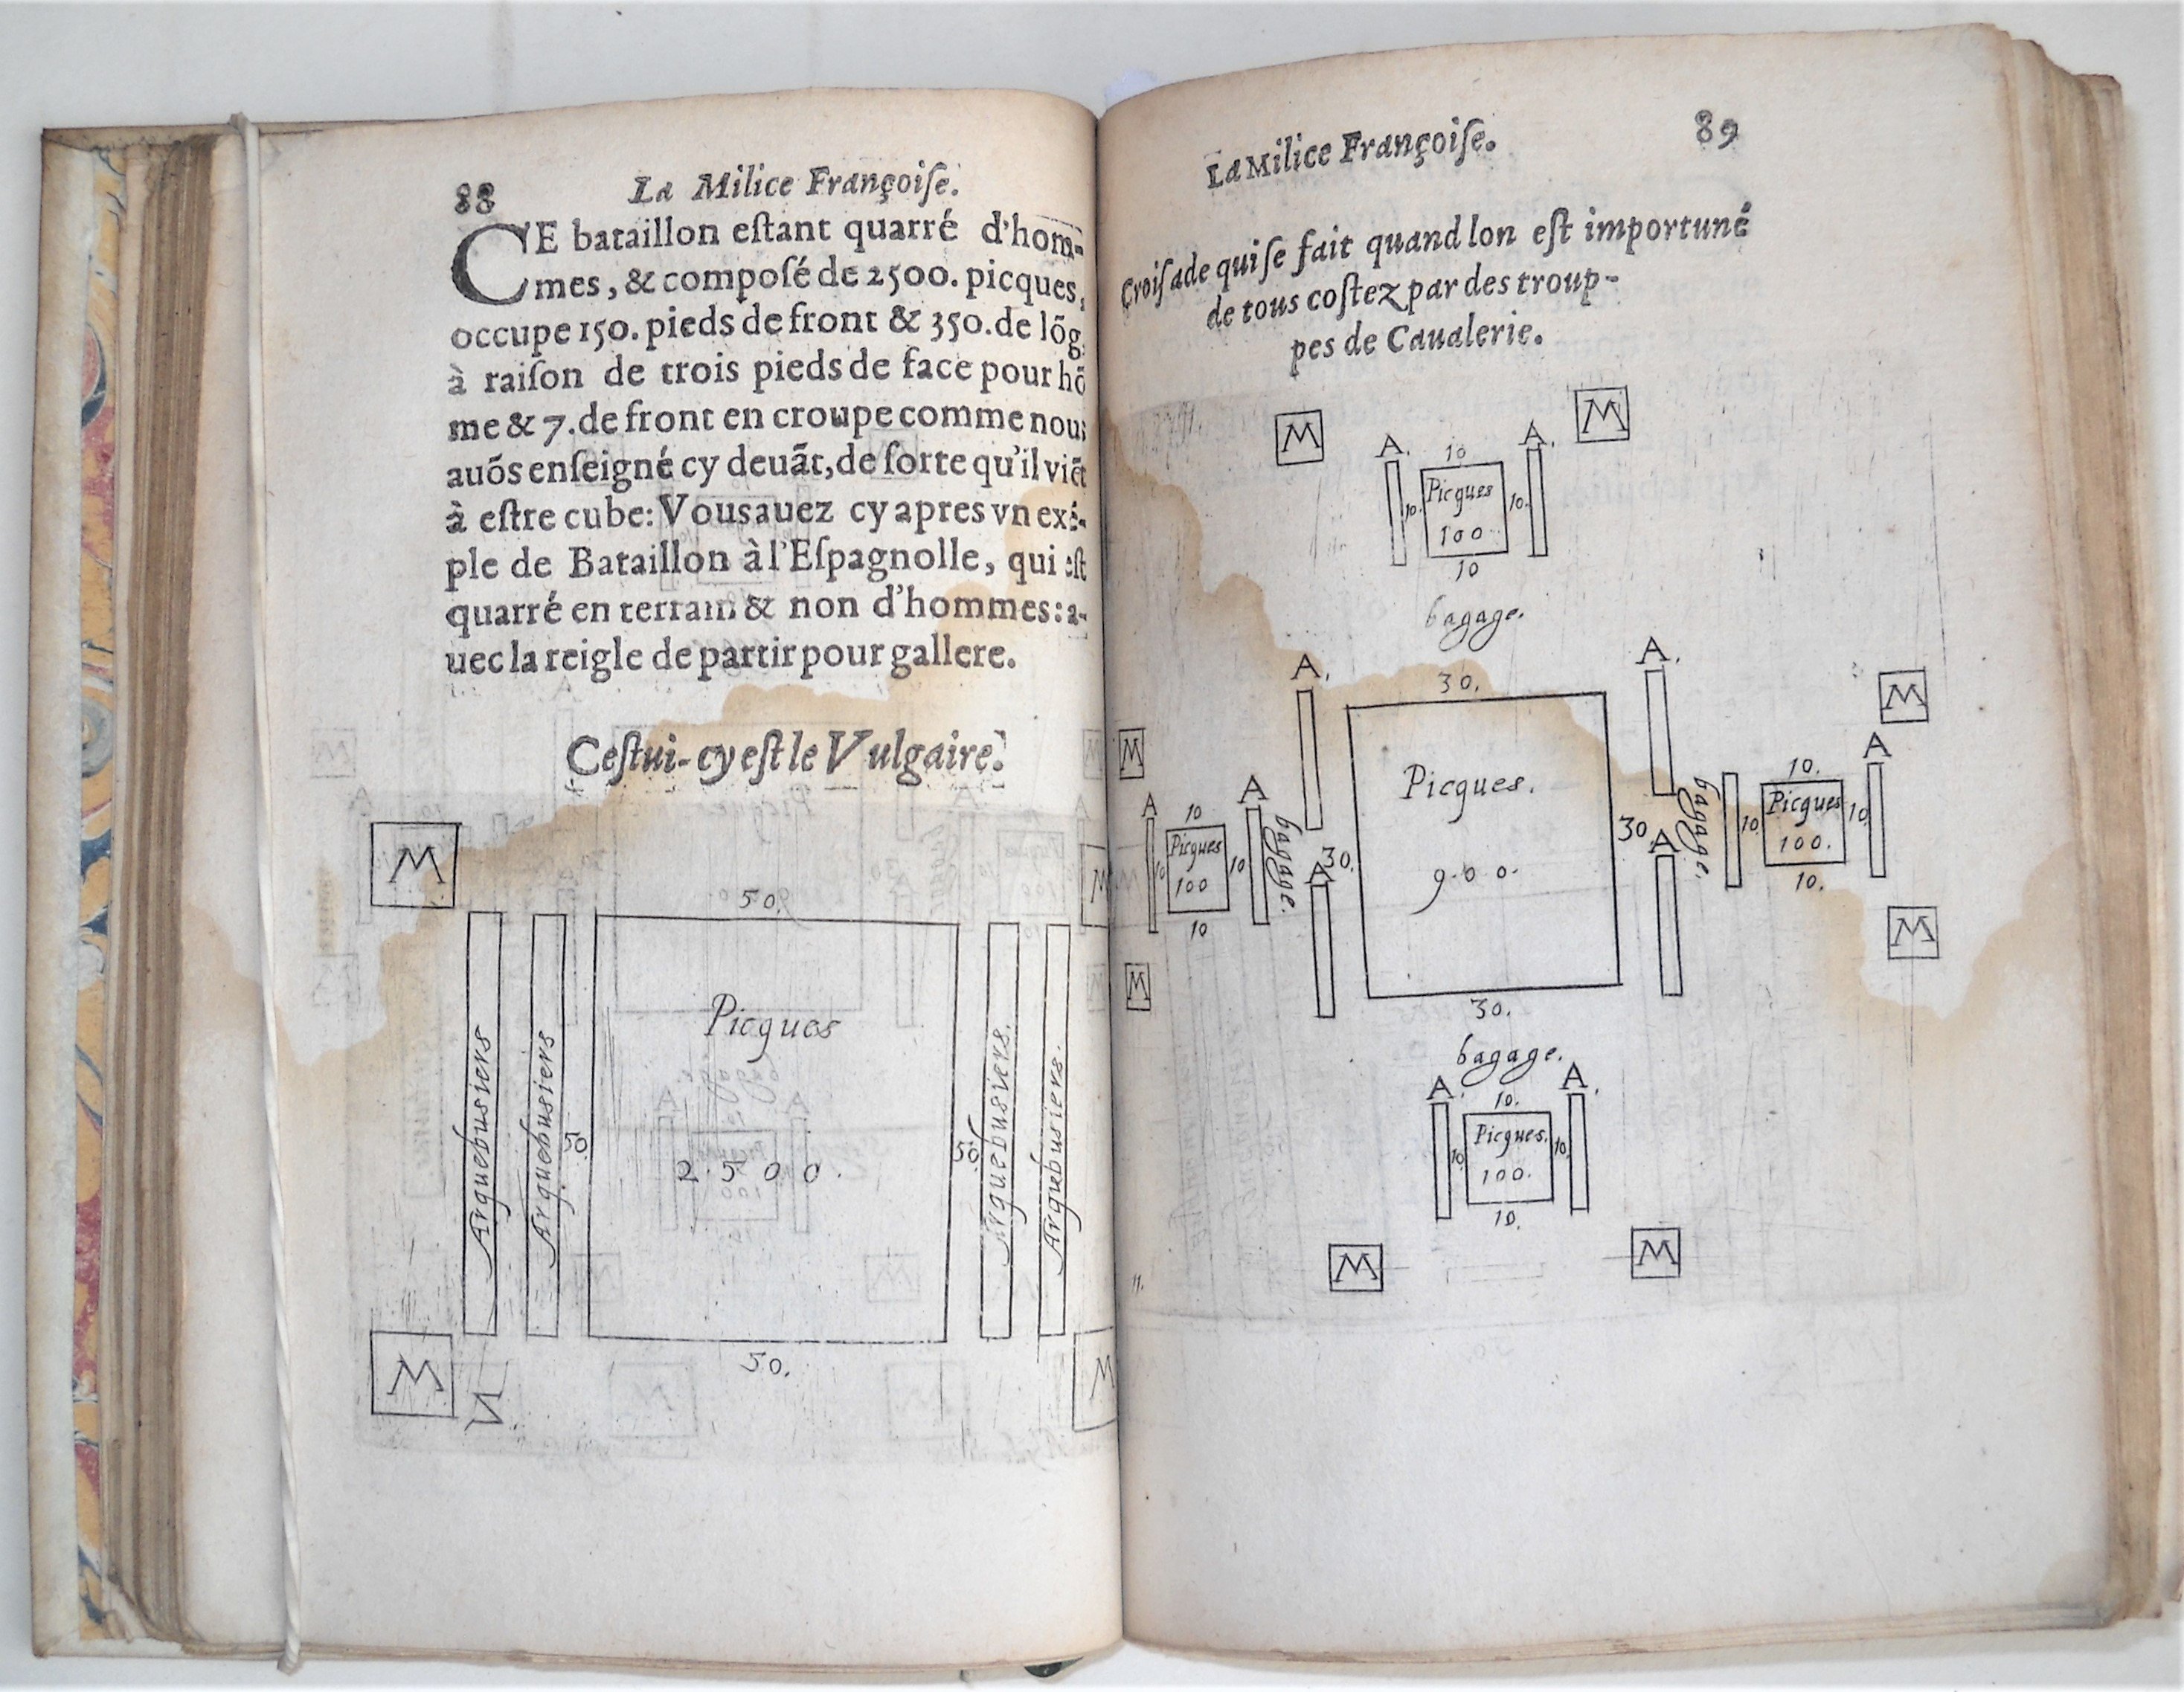 88 La Milice Françoiſe.
CE bataillon eſtant quarré d'hom-
mes, & compoſé de 2500. picques,
occupe 150. pieds de front & 350. de lõg,
à raiſon de trois pieds de face pour hõ
me & 7. de front en croupe comme nous
auõs enſeigné cy deuãt, de ſorte qu'il viẽt
à eſtre cube: Vous auez cy apres vn exé-
ple de Bataillon à l'Eſpagnolle, qui eſt
quarré en terrain & non d'hommes: a-
uec la reigle de partir pour gallere.
Ceſtui-cy eſt le Vulgaire.
M
M
50.
Arquebusiers
Arquebusiers
50
Picques
2500.
50
Arquebusiers.
Arquebusiers.
50.
M
M
La Milice Françoiſe. 89
Croiſade qui ſe fait quand lon eſt importuné
de tous coſtez par des troup-
pes de Caualerie.
M
M
A.
10
A.
10.
Picques
100
10.
10
bagage.
M
A
10
10
Picques
100
10
10
A
bagage.
M
A.
30.
A.
30.
A
Picques.
900.
30
A
30.
bagage.
M
10.
A
10.
Picques
100.
10.
10.
M
bagage.
A
10.
A.
10.
Picques.
100.
10.
10.
M
M